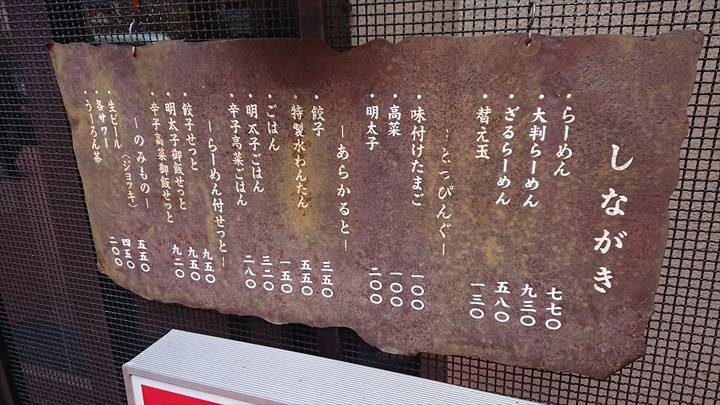 しながき
・らーめん 七七〇
・大判らーめん 九三〇
・ざるらーめん 五八〇
・替え玉 一三〇
―とっぴんぐ―
・味付けたまご 一〇〇
・高菜 一〇〇
・明太子 二〇〇
―あらかると―
・餃子 三五〇
・特製水わんたん 五五〇
・ごはん 一五〇
・明太子ごはん 三二〇
・辛子高菜ごはん 二八〇
―らーめん付せっと―
・餃子せっと 九五〇
・明太子御飯せっと 九五〇
・辛子高菜御飯せっと 九二〇
―のみもの―
・生ビール(ジョッキ) 五五〇
・各サワー 四五〇
・うーろん茶 二〇〇